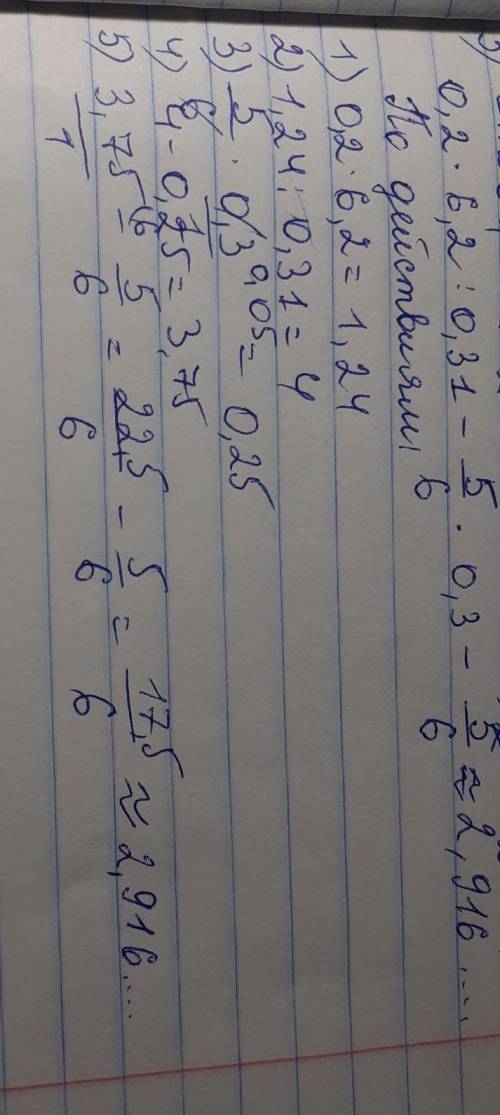 0,2 · 6,2 : 0,31 - 5/6 · 0,3 - 5/6 ≈ 2,916...
По действиям:
1) 0,2 · 6,2 = 1,24
2) 1,24 : 0,31 = 4
3) 5/6 · 0,3 0,05 / 1 = 0,25
4) 4 - 0,25 = 3,75
5) 3,75/1 6 - 5/6 = 22,5/6 - 5/6 = 17,5/6 ≈ 2,916...